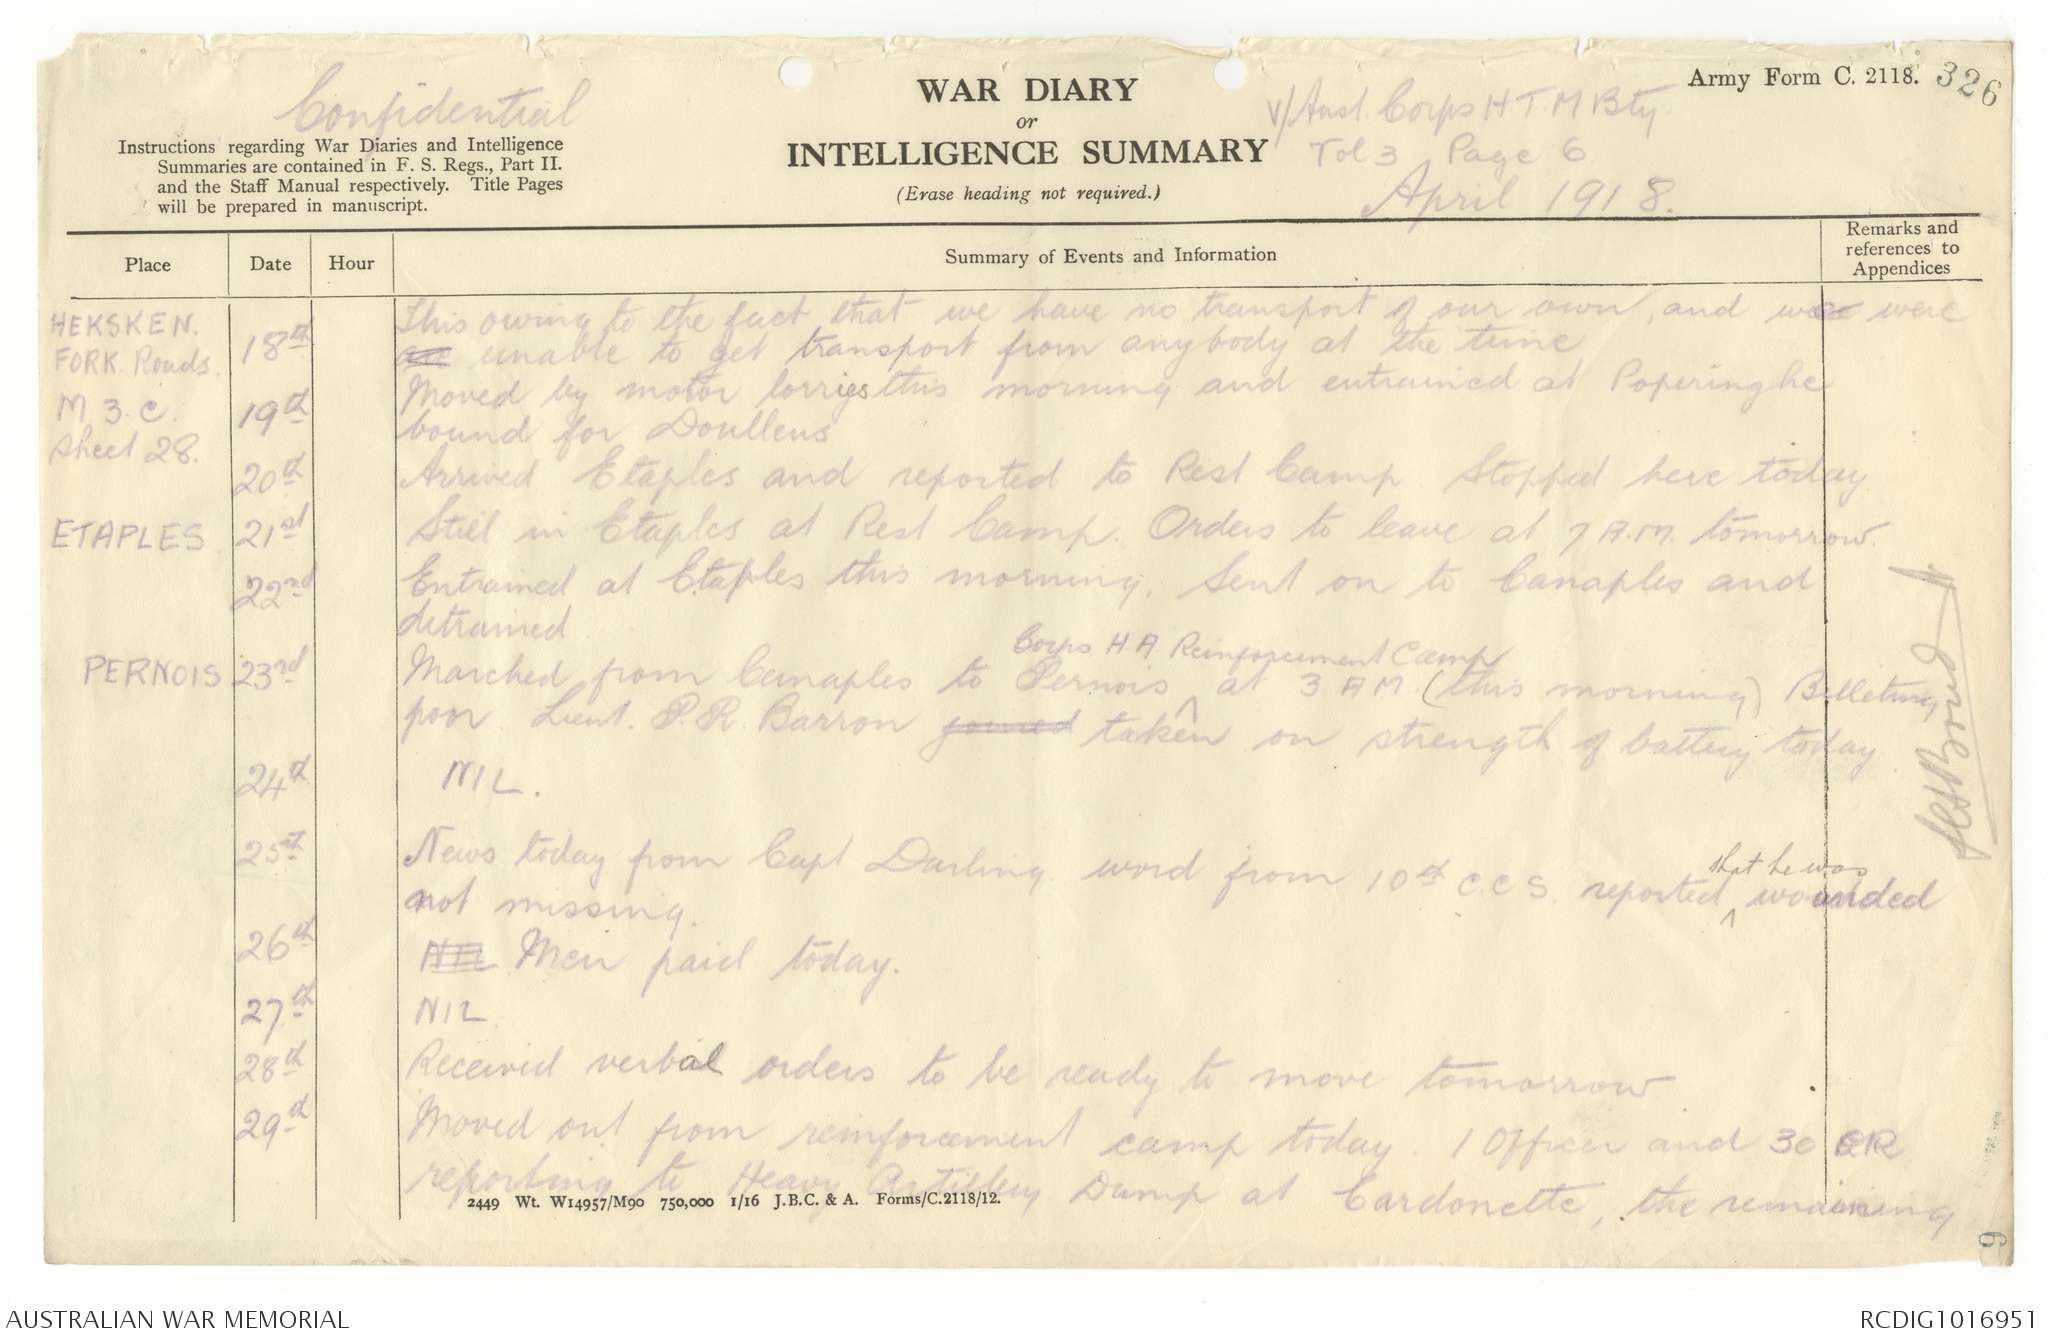 Confidential
WAR DIARY
or
INTELLIGENCE SUMMARY
(Erase heading not required.)
Army Form C. 2118. 326
V/Aust. Corps H T. M Bty.
Vol 3 Page 6
April 1918.
Instructions regarding War Diaries and Intelligence
Summaries are contained in F. S. Regs., Part II.
and the Staff Manual respectively. Title Pages
will be prepared in manuscript.
Place Date Hour Summary of Events and Information Remarks and references to Appendices
HEKSKEN.
FORK Roads.
M 3. c.
Sheet 28.
18th This owing to the fact that we have no transport of our own, and were
unable to get transport from anybody at the time
19th Moved by motor lorries this morning and entrained at Poperinghe
bound for Doullens
20th Arrived Etaples and reported to Rest Camp. Stopped here today
ETAPLES 21st Still in Etaples at Rest Camp. Orders to leave at 7 A.M. tomorrow.
22nd Entrained at Etaples this morning. Sent on to Canaples and
detrained
Corps H A Reinforcement Camp
PERNOIS 23rd Marched from Canaples to Pernois ^ at 3 AM (this morning) Billeting
poor Lieut. P. R. Barron joined taken on strength of battery today
24th NIL.
that he was
25th News today from Capt Darling word from 10th C.C.S. reported ^ wounded
not missing.
26th NIL Men paid today.
27th NIL
28th Received verbal orders to be ready to move tomorrow
29th Moved out from reinforcement camp today. 1 Officer and 30 OR
reporting to Heavy Artillery Dump at Cardonette, the remaining
2449 Wt. W14957/M90 750,000 1/16 J.B.C. & A. Forms/C.2118/12.
6
AUSTRALIAN WAR MEMORIAL
RCDIG1016951